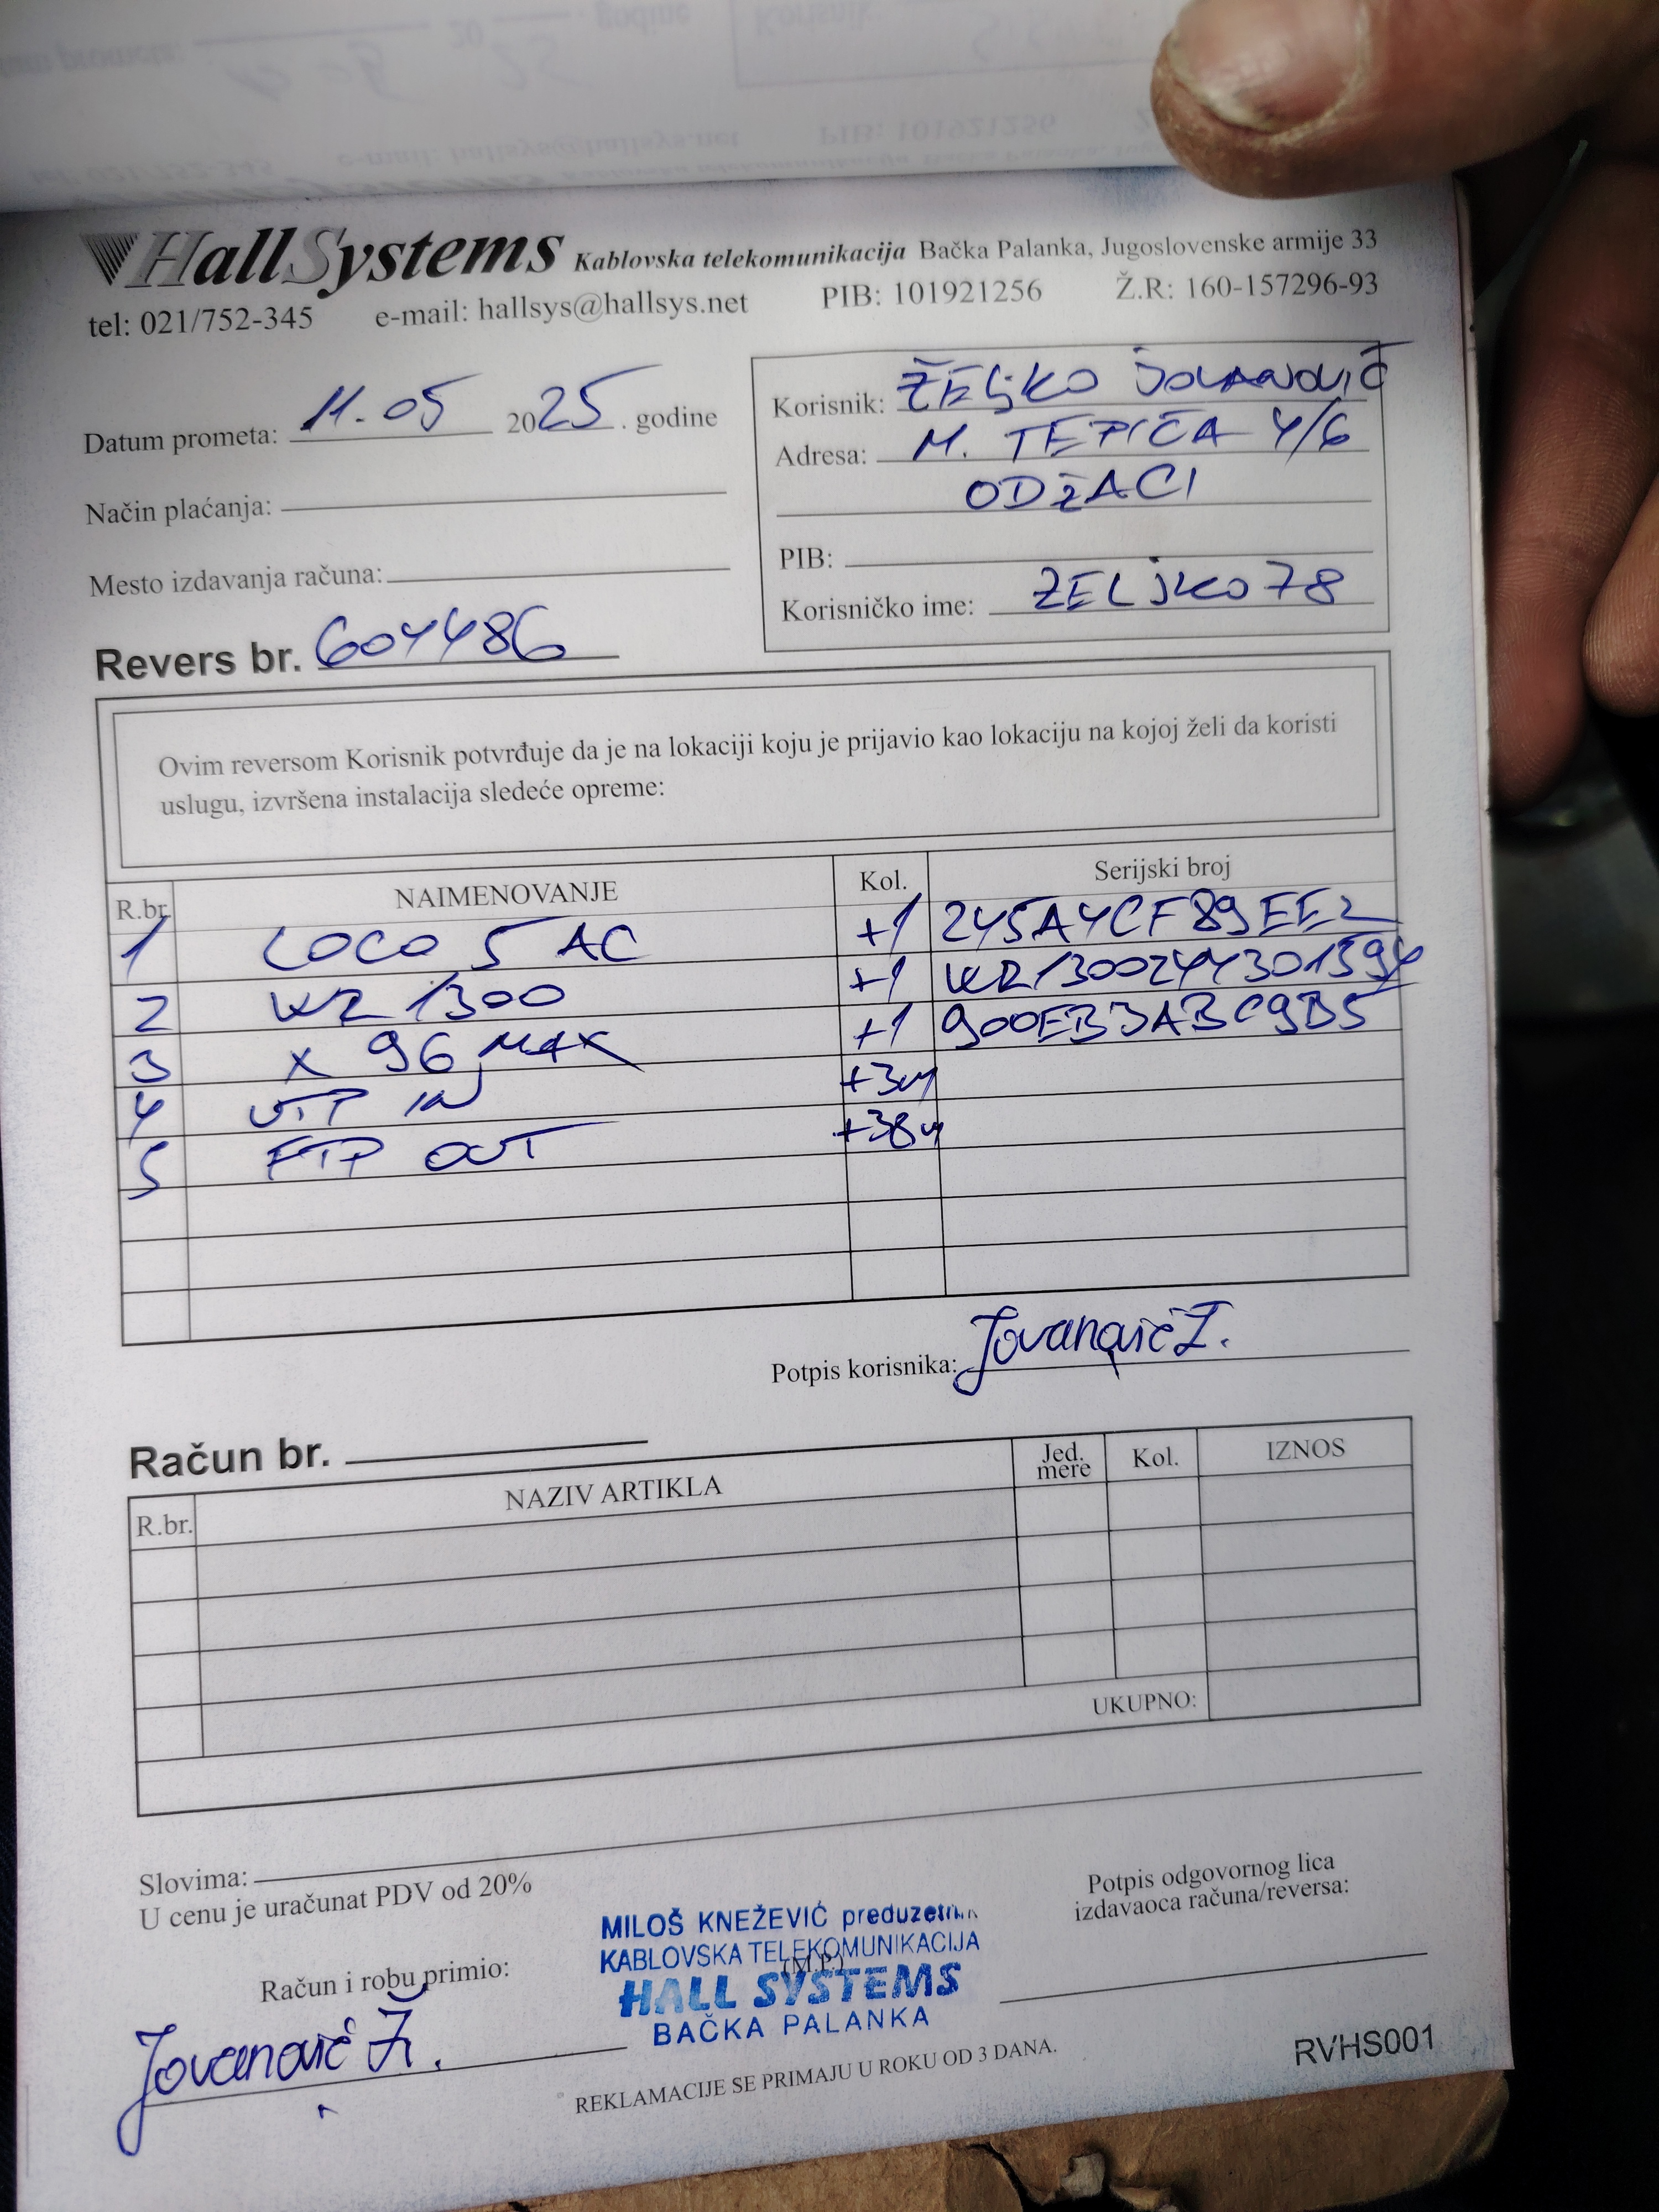 HallSystems Kablovska telekomunikacija Bačka Palanka, Jugoslovenske armije 33
tel: 021/752-345 e-mail: hallsys@hallsys.net PIB: 101921256 Ž.R: 160-157296-93
Datum prometa: 11.05 2025. godine
Način plaćanja:
Mesto izdavanja računa:
Revers br. 604486
Korisnik: ŽELJKO JOVANOVIĆ
Adresa: M. TEPIĆA 4/6
ODžACI
PIB:
Korisničko ime: ZELJKO78
Ovim reversom Korisnik potvrđuje da je na lokaciji koju je prijavio kao lokaciju na kojoj želi da koristi
uslugu, izvršena instalacija sledeće opreme:
R.br. NAIMENOVANJE Kol. Serijski broj
1 LOCO 5 AC +1 245A4CF89EE2
2 WR 1300 +1 WR1300244301594
3 X 96 MAX +1 900EB3ABC9B5
4 UTP IN +3m
5 FTP OUT +38m
Potpis korisnika: Jovanović Ž.
Račun br.
R.br. NAZIV ARTIKLA Jed. mere Kol. IZNOS
UKUPNO:
Slovima:
U cenu je uračunat PDV od 20%
Račun i robu primio:
Jovanović Ž.
MILOŠ KNEŽEVIĆ preduzetnik
KABLOVSKA TELEKOMUNIKACIJA
(M.P.)
HALL SYSTEMS
BAČKA PALANKA
Potpis odgovornog lica
izdavaoca računa/reversa:
REKLAMACIJE SE PRIMAJU U ROKU OD 3 DANA.
RVHS001